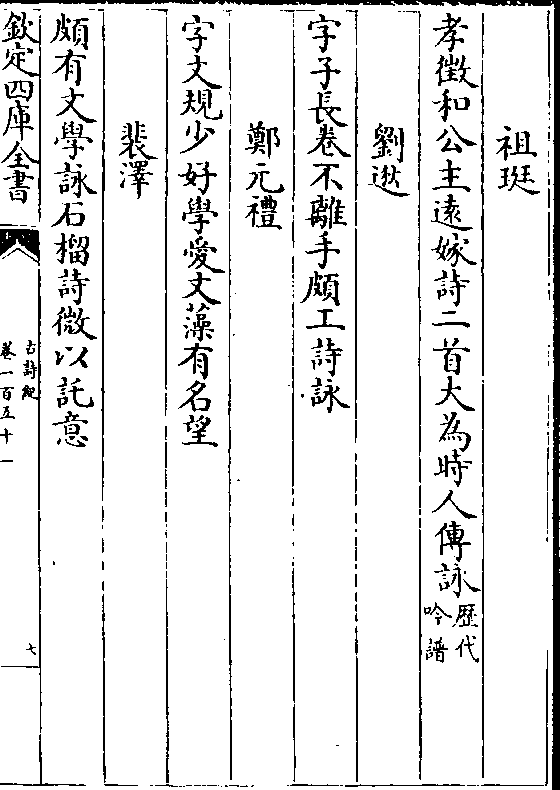 祖珽
孝徵和公主遠嫁詩二首大為時人傳詠歴代吟譜
劉逖
字子長卷不離手頗工詩詠
鄭元禮
字文規少好學愛文藻有名望
裴澤
頗有文學詠石榴詩微以託意
欽定四庫全書
古詩紀
卷一百五十一
七